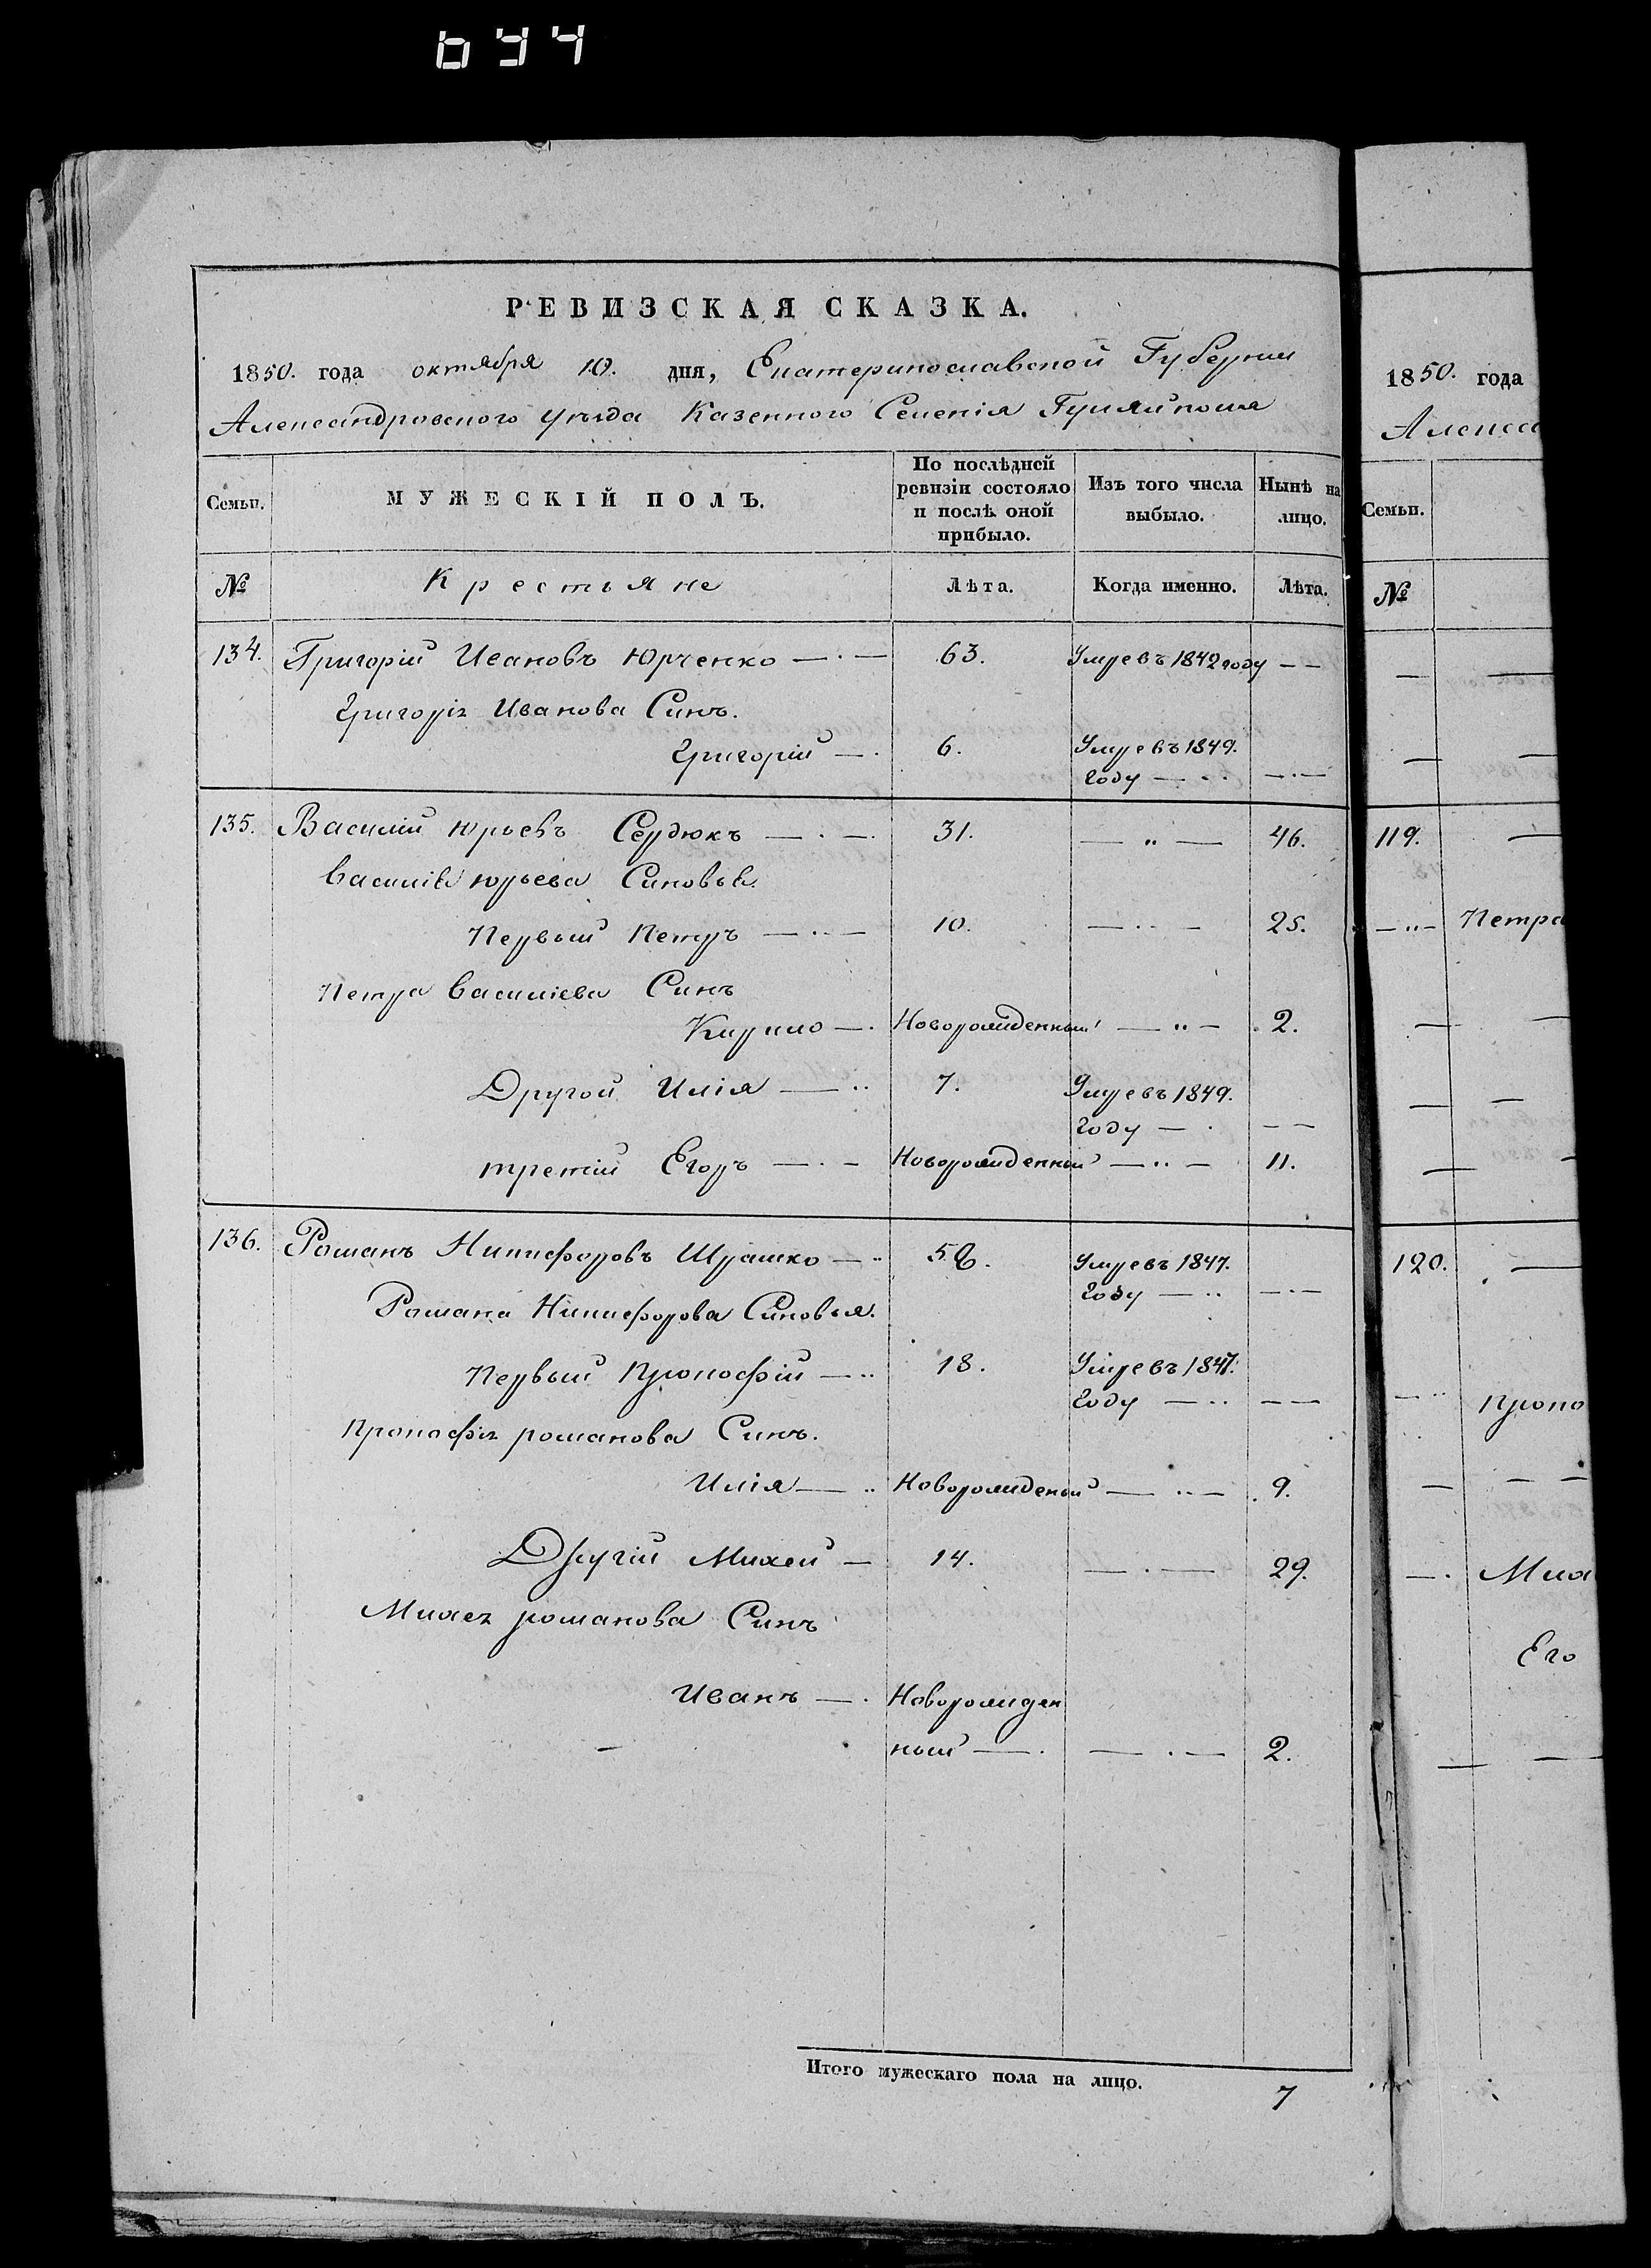 694
РЕВИЗСКАЯ СКАЗКА.
1850. года октября 10. дня, Екатеринославской Губернии
Александровского уѣзда Казенного Селенія Гуляйполя
Семьи.
МУЖЕСКІЙ ПОЛЪ.
По послѣдней ревизіи состояло и послѣ оной прибыло.
Изъ того числа выбыло.
Нынѣ на лицо.
№ Крестьяне Лѣта. Когда именно. Лѣта.
134. Григорій Ивановъ Юрченко — · — 63. Умре въ 1842 году — —
Григорія Иванова Синъ.
Григорій — · 6. Умре въ 1849.
году — · · — · —
135. Василій Юрьевъ Сердюкъ — · — 31. — „ — 46.
Василія Юрьева Синовья.
Первый Петръ — · · — 10. — · · — 25.
Петра Василіева Синъ
Кирило — · Новорожденный — „ — 2.
Другой Илія — · · 7. Умре въ 1849.
году — · — —
третій Егоръ — · — Новорожденный — · · — 11.
136. Романъ Никифоровъ Шрамко — · · 58. Умре въ 1847.
году — · · — · —
Романа Никифорова Синовья.
Первый Прокофій — · · 18. Умре въ 1847.
году — · · — —
Прокофія романова Синъ.
Илія — · · Новорожденый — · · — 9.
Другій Михей — 14. — · — 29.
Михея романова Синъ
Иванъ — · Новорожден
ный — · — · — 2.
Итого мужескаго пола на лицо. 7
1850. года
Алекса
Семьи.
№
119. —
— „ — Петра
120. —
— · · Проко
— · Мих
Его